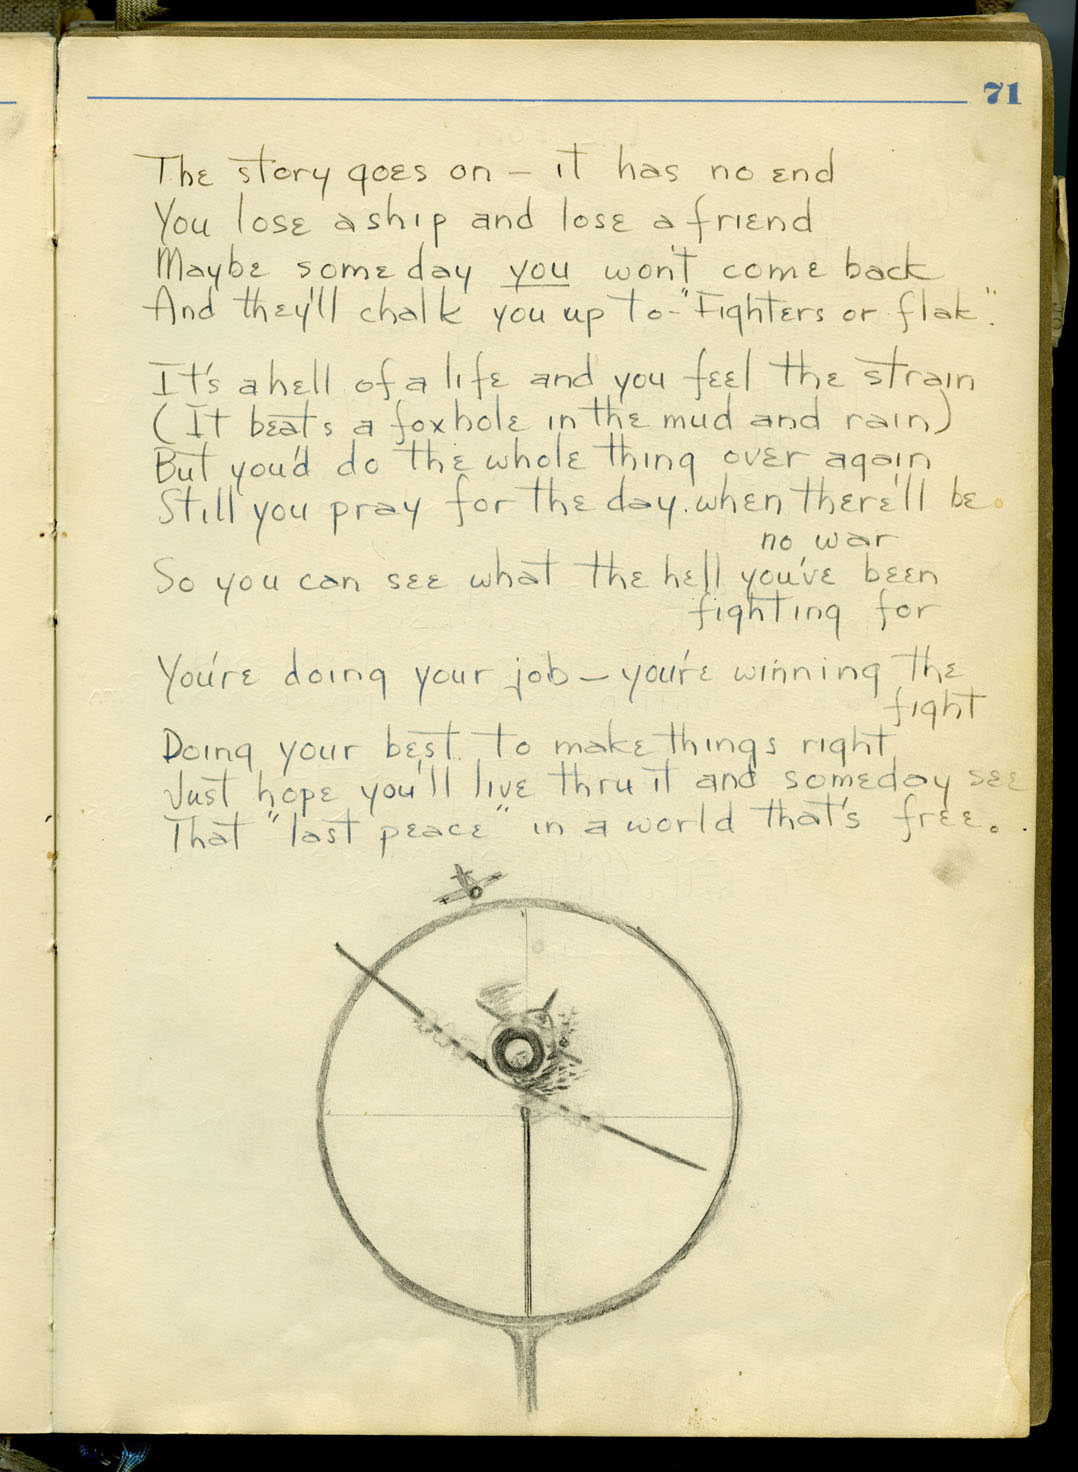 71
The story goes on – it has no end
You lose a ship and lose a friend
Maybe some day you won't come back
And they'll chalk you up to – "Fighters or flak".
It's a hell of a life and you feel the strain
(It beats a foxhole in the mud and rain)
But you'd do the whole thing over again
Still you pray for the day when there'll be
no war
So you can see what the hell you've been
fighting for
You're doing your job – you're winning the
fight
Doing your best to make things right
Just hope you'll live thru it and someday see
That "last peace" in a world that's free.